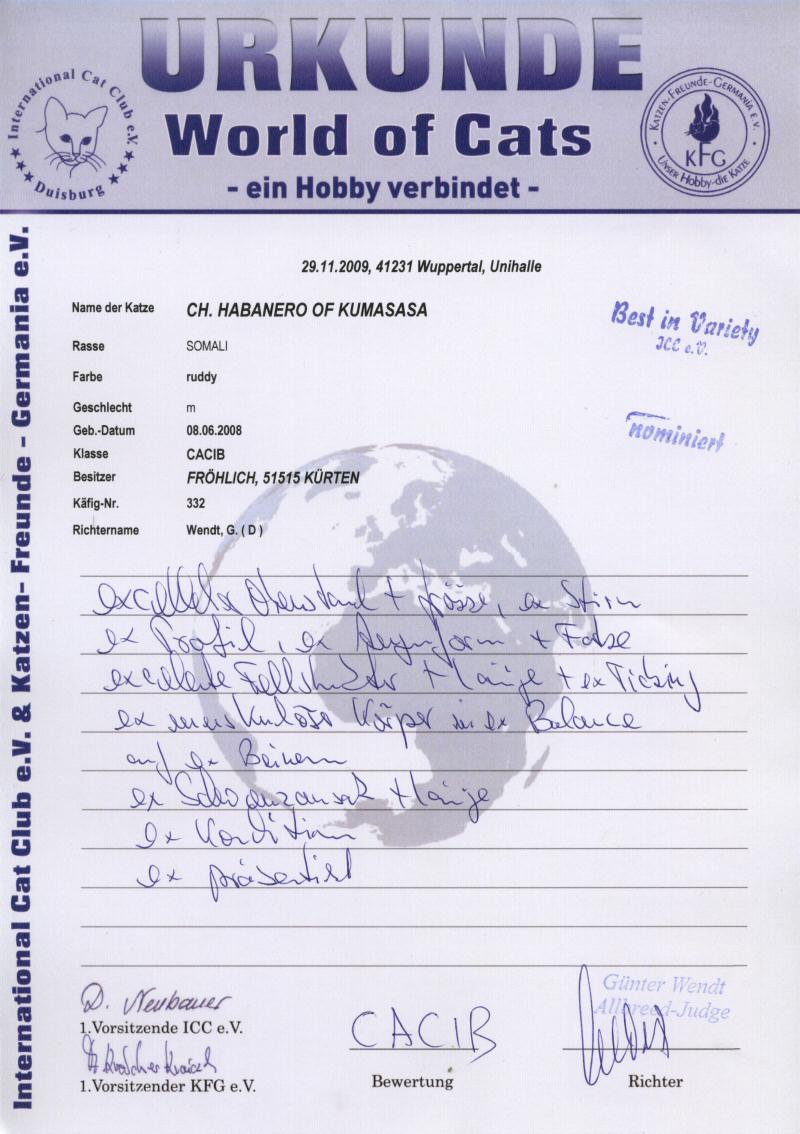 URKUNDE
World of Cats
- ein Hobby verbindet -
International Cat Club e.V.
Duisburg
KATZEN-FREUNDE-GERMANIA E.V.
KFG
UNSER HOBBY-DIE KATZE
International Cat Club e.V. & Katzen- Freunde - Germania e.V.
29.11.2009, 41231 Wuppertal, Unihalle
Name der Katze CH. HABANERO OF KUMASASA
Rasse SOMALI
Farbe ruddy
Geschlecht m
Geb.-Datum 08.06.2008
Klasse CACIB
Besitzer FRÖHLICH, 51515 KÜRTEN
Käfig-Nr. 332
Richtername Wendt, G. ( D )
Best in Variety
ICC e.V.
nominiert
Ohrenstand + Grösse, ex Stirn
ex Profil, ex Augenform + Farbe
excellente Felltextur + Länge + ex Ticking
ex muskulöser Körper in ex Balance
auf ex Beinen
ex Schwanzansatz + Länge
ex Kondition
ex präsentiert
D. Neubauer
1.Vorsitzende ICC e.V.
1.Vorsitzender KFG e.V.
CACIB
Bewertung
Günter Wendt
Allbreed-Judge
Richter